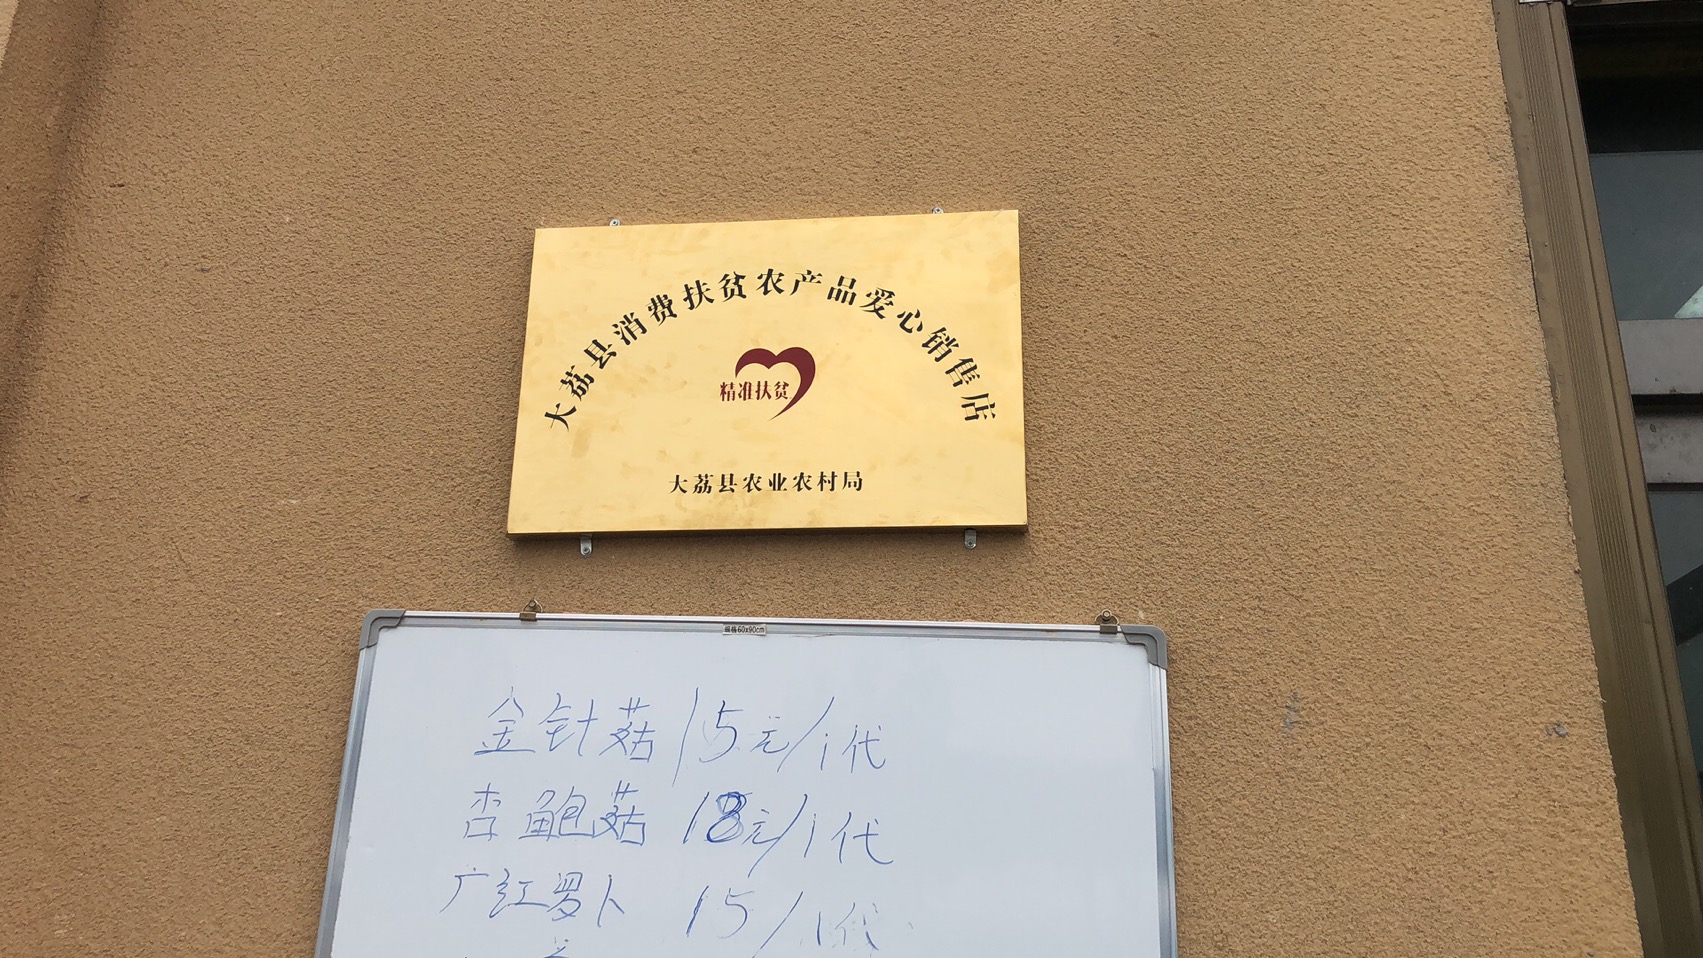 大荔县消费扶贫农产品爱心销售店
精准扶贫
大荔县农业农村局
规格60x90cm
金针菇 15元/1代
杏鲍菇 18元/1代
广红罗卜 15/1代